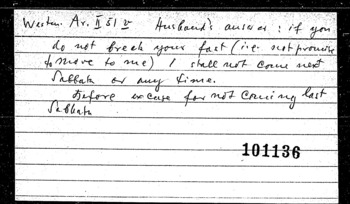 Westm. Ar. II 51 v Husband's answer: if you
do not break your fast (i.e. not promise
to move to me) I shall not come next
Sabbath or any time.
before excuse for not coming last
Sabbath
101136